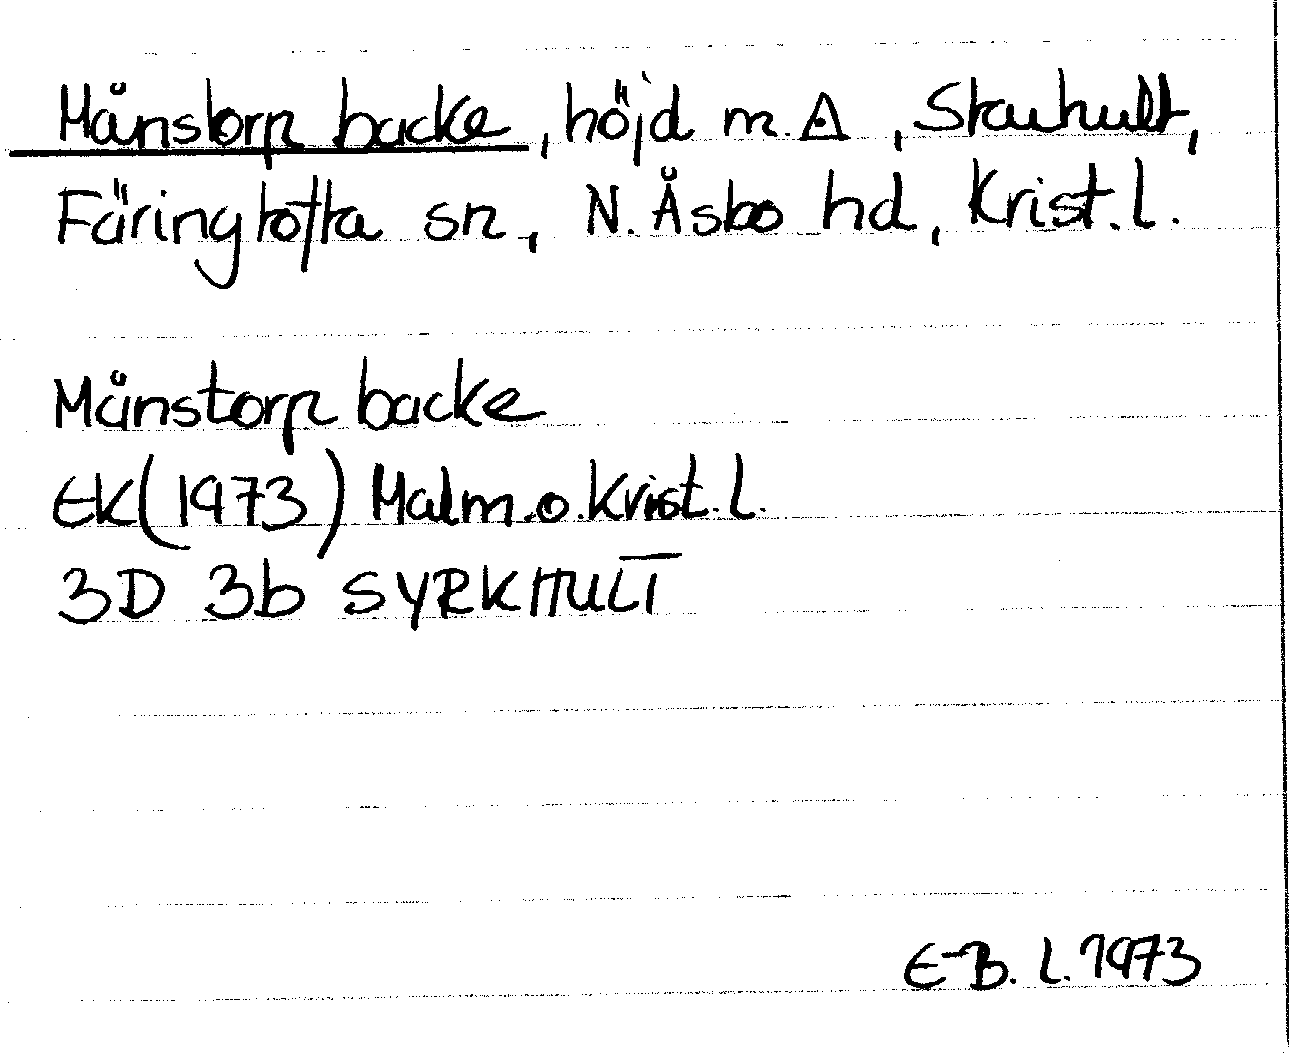 Månstorp backe, höjd m. ◬, Stauhult,
Färingtofta sn, N. Åsbo hd, Krist. l.
Månstorp backe
EK (1973) Malm. o. Krist. l.
3D 3b SYRKHULT
E-B. L. 1973